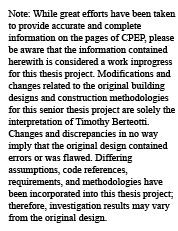 Note: While great efforts have been taken
to provide accurate and complete
information on the pages of CPEP, please
be aware that the information contained
herewith is considered a work inprogress
for this thesis project. Modifications and
changes related to the original building
designs and construction methodologies
for this senior thesis project are solely the
interpretation of Timothy Berteotti.
Changes and discrepancies in no way
imply that the original design contained
errors or was flawed. Differing
assumptions, code references,
requirements, and methodologies have
been incorporated into this thesis project;
therefore, investigation results may vary
from the original design.